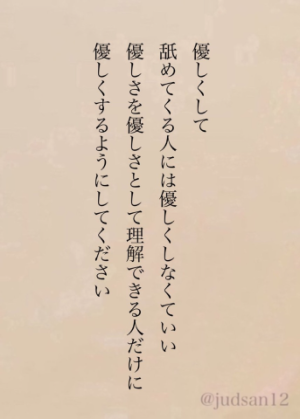 優しくして
舐めてくる人には優しくしなくていい
優しさを優しさとして理解できる人だけに
優しくするようにしてください
@judsan12